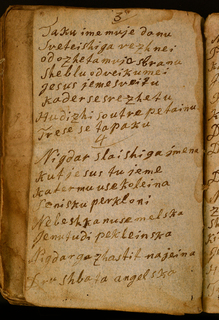 3
Taku ime muje danu
Sveteishiga rezhnei
od ozheta mujo sbranu
She blu odveikumei
Jesus jeme sveitu
kader se rezhetu
Hudizhi so utre petainu
Trese se ta paku
4
Nigdar slaishi ga jmena
kut jesus tu jeme
kateru mu use koleina
Ponisku perkloni
Nebeshka nu semelska
Jenu tudi pekleinska
Nigdar ga zhastit najeina
shbata angelska